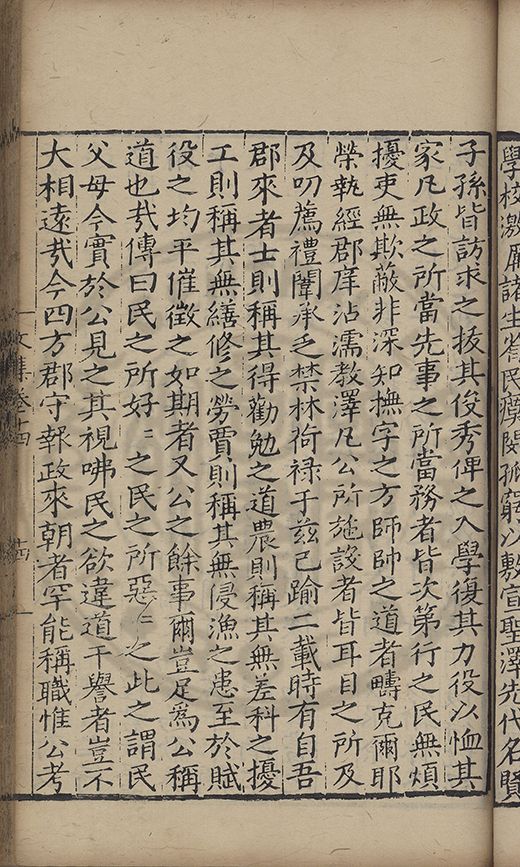 學校激厲諸生省民瘼閔孤窮以敷宣聖澤先代名賢
子孫皆訪求之拔其俊秀俾之入學復其力役以恤其
家凡政之所當先事之所當務者皆次第行之民無煩
擾吏無欺蔽非深知撫字之方師帥之道者疇克爾耶
榮執經郡庠沾濡教澤凡公所施設者皆耳目之所及
及叨薦禮闈承乏禁林荷祿于兹已踰二載時有自吾
郡來者士則稱其得勸勉之道農則稱其無差科之擾
工則稱其無繕修之勞賈則稱其無侵漁之患至於賦
役之均平催徵之如期者又公之餘事爾豈足爲公稱
道也㢤傳曰民之所好〻之民之所惡〻之此之謂民
父母今實於公見之其視咈民之欲違道干譽者豈不
大相遠㢤今四方郡守報政來朝者罕能稱職惟公考
文集卷十四